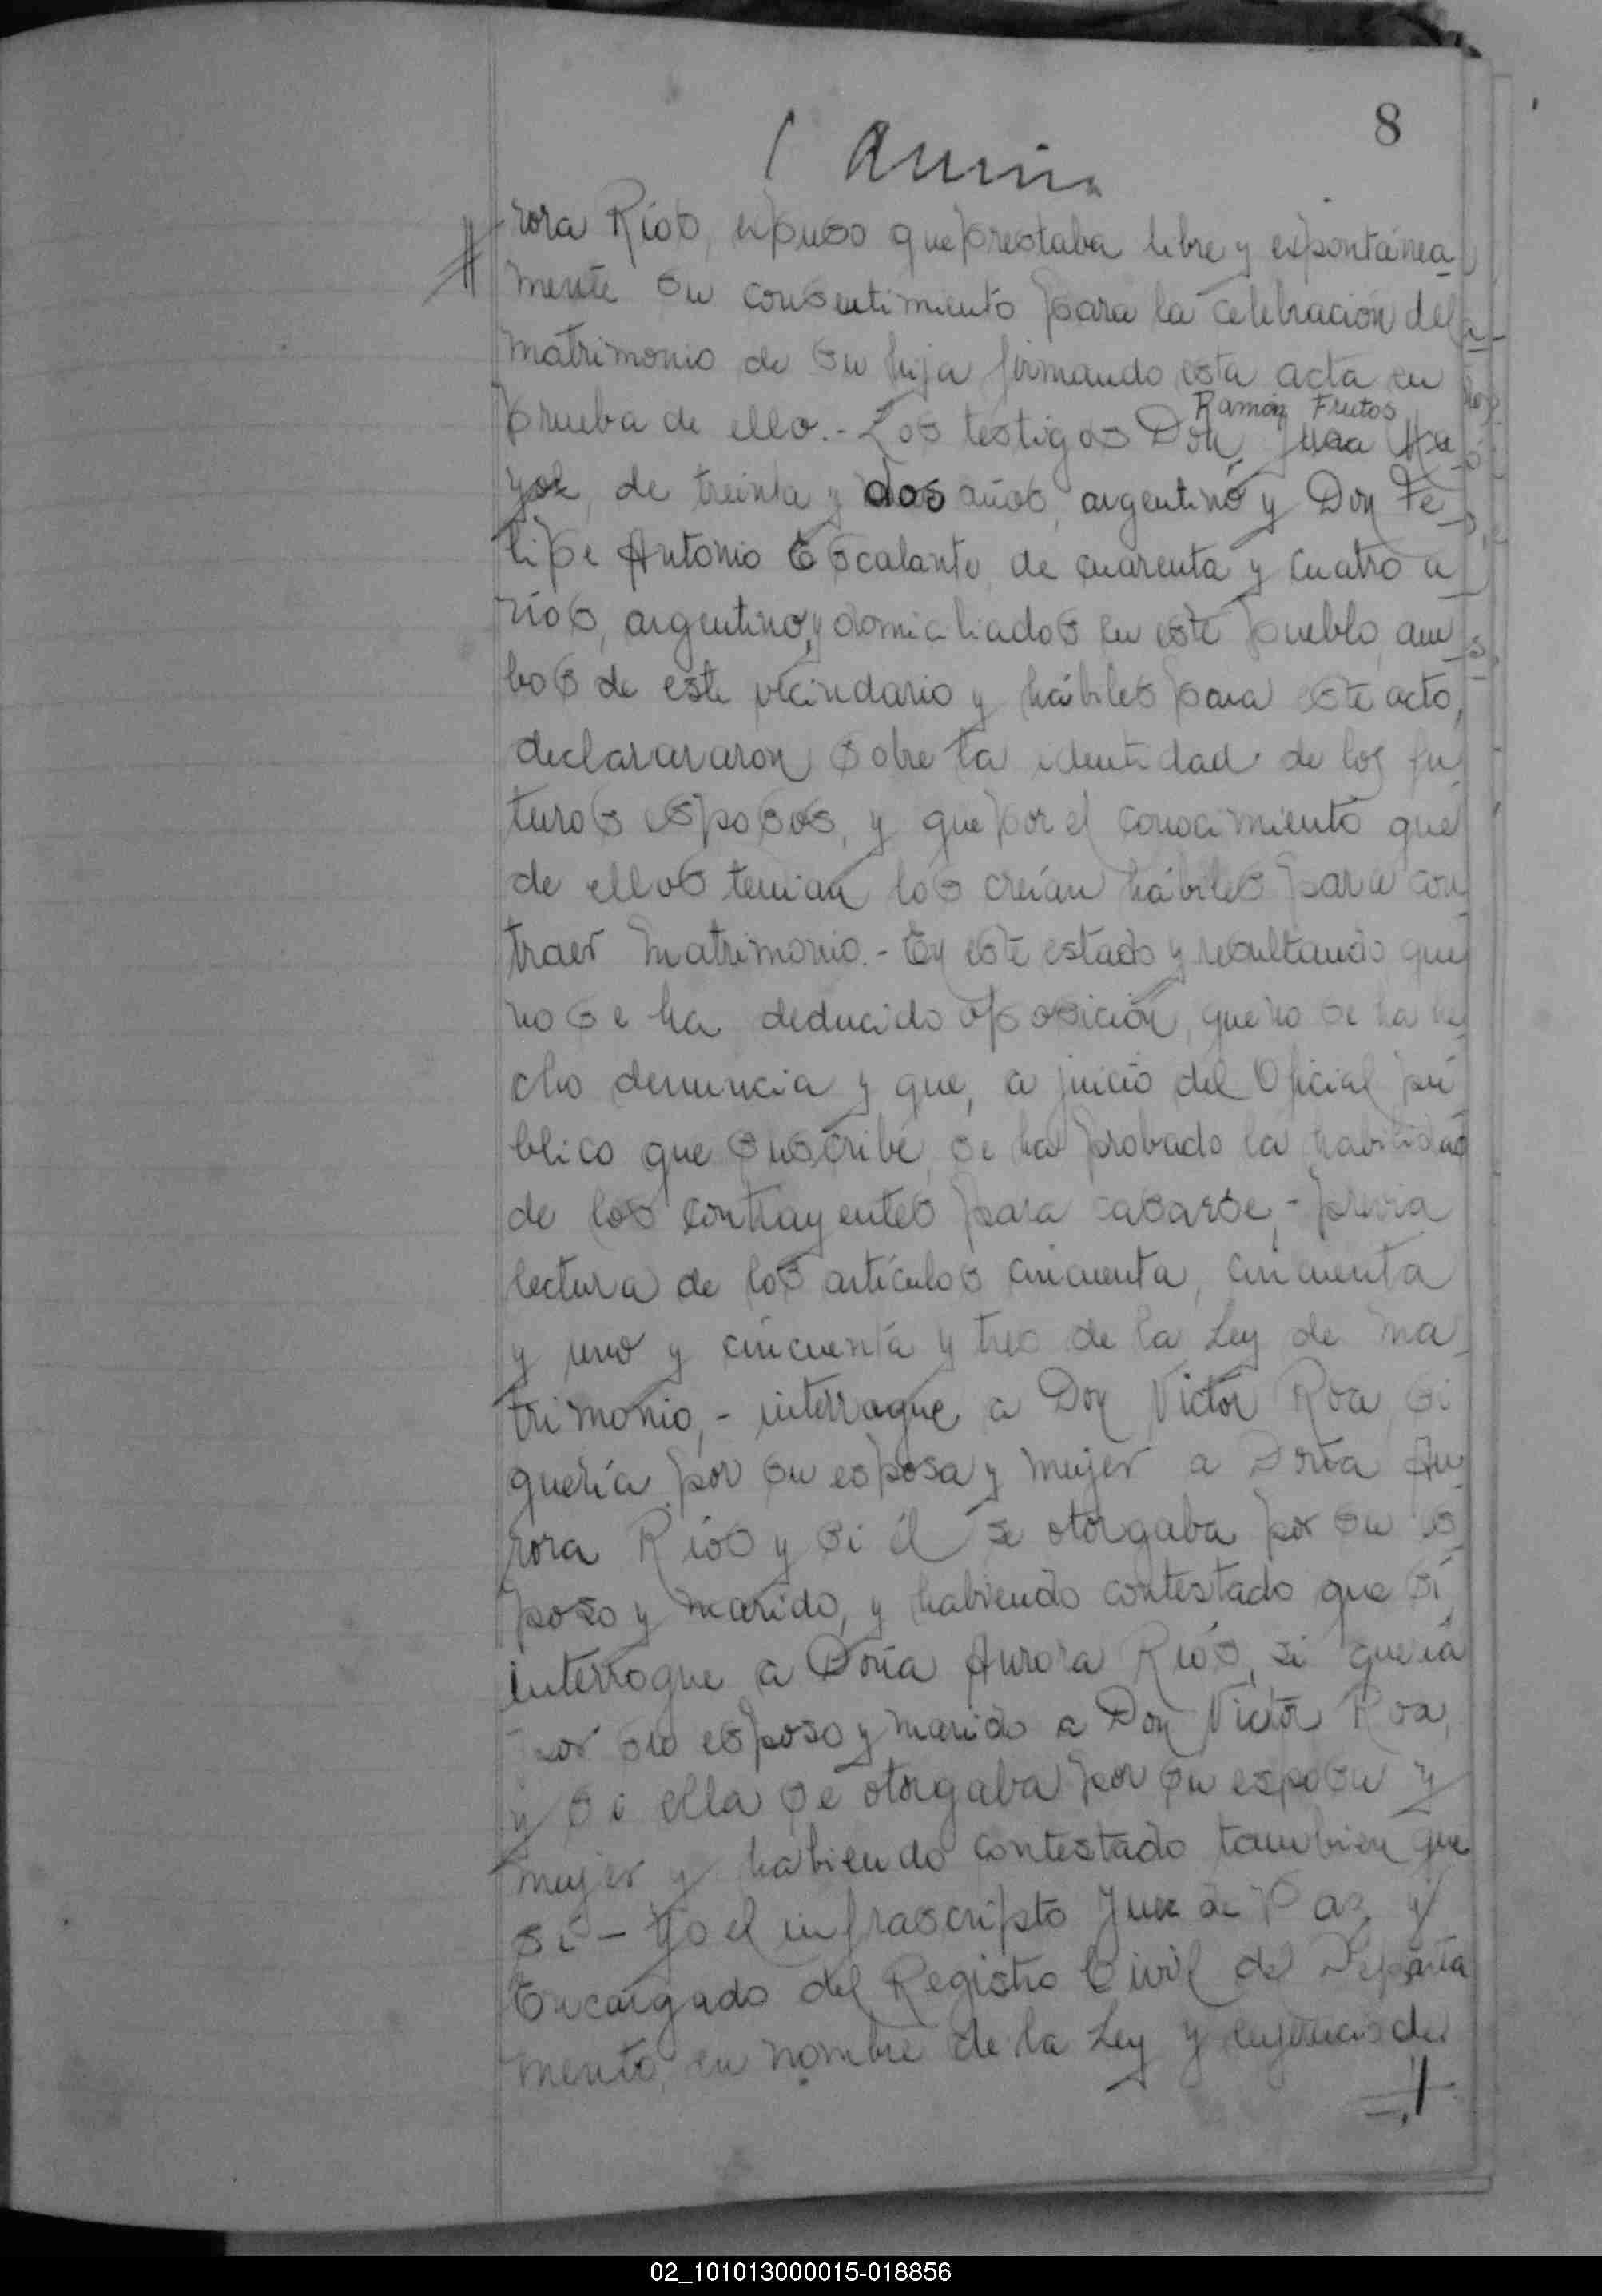 8
rora Ríos, expuso que prestaba libre y espontánea
mente su consentimiento para la celebración del
matrimonio de su hija firmando esta acta en
Ramón Frutos
prueba de ello.- Los testigos Don, Juan
de treinta y dos años, argentino y Don Fe
lipe Antonio Escalante de cuarenta y cuatro a
ños, argentino, y domiciliados en este pueblo, am
bos de este vecindario y hábiles para este acto,
declarararon sobre la identidad de los fu
turos esposos, y que por el conocimiento que
de ellos tenian los creían hábiles para con
traer matrimonio.- En este estado y resultando que
no se ha deducido oposición, que no se ha he
cho denuncia y que, a juicio del Oficial pú
blico que suscribe, se ha probado la habilidad
de los contrayentes para casarse,- previa
lectura de los artículos cincuenta, cincuenta
y uno y cincuenta y tres de la Ley de ma
trimonio,- interrogue a Don Victor Roa si
quería por su esposa y mujer a Doña Au
rora Ríos y si él se otorgaba por su es
poso y marido, y habiendo contestado que sí,
interrogue a Doña Aurora Ríos, si quería
por su esposo y marido a Don Victor Roa,
y si ella se otorgaba por su esposa y
mujer y habiendo contestado tambien que
sí - Yo el infrascripto Juez de Paz y
Encargado del Registro Civil del Departa
mento, en nombre de la Ley y
02_101013000015-018856